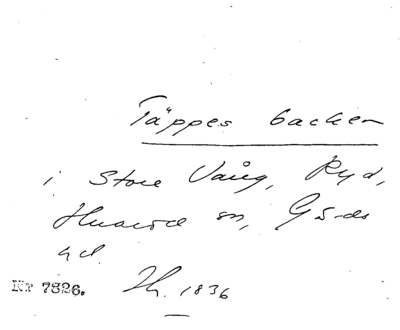 Täppes backen
i Store Vång, Ryd,
Hvarve sn, Gärds
hd.
Kr 7326. Th. 1836